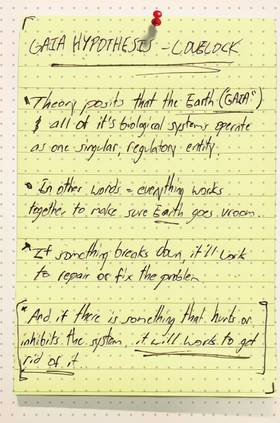 GAIA HYPOTHESIS - LOVELOCK
* Theory posits that the Earth ("GAIA")
& all of it's biological systems operate
as one singular, regulatory entity.
* In other words = everything works
together to make sure Earth goes vroom.
* If something breaks down, it'll work
to repair or fix the problem.
* And if there is something that hurts or
inhibits the system, it will work to get
rid of it